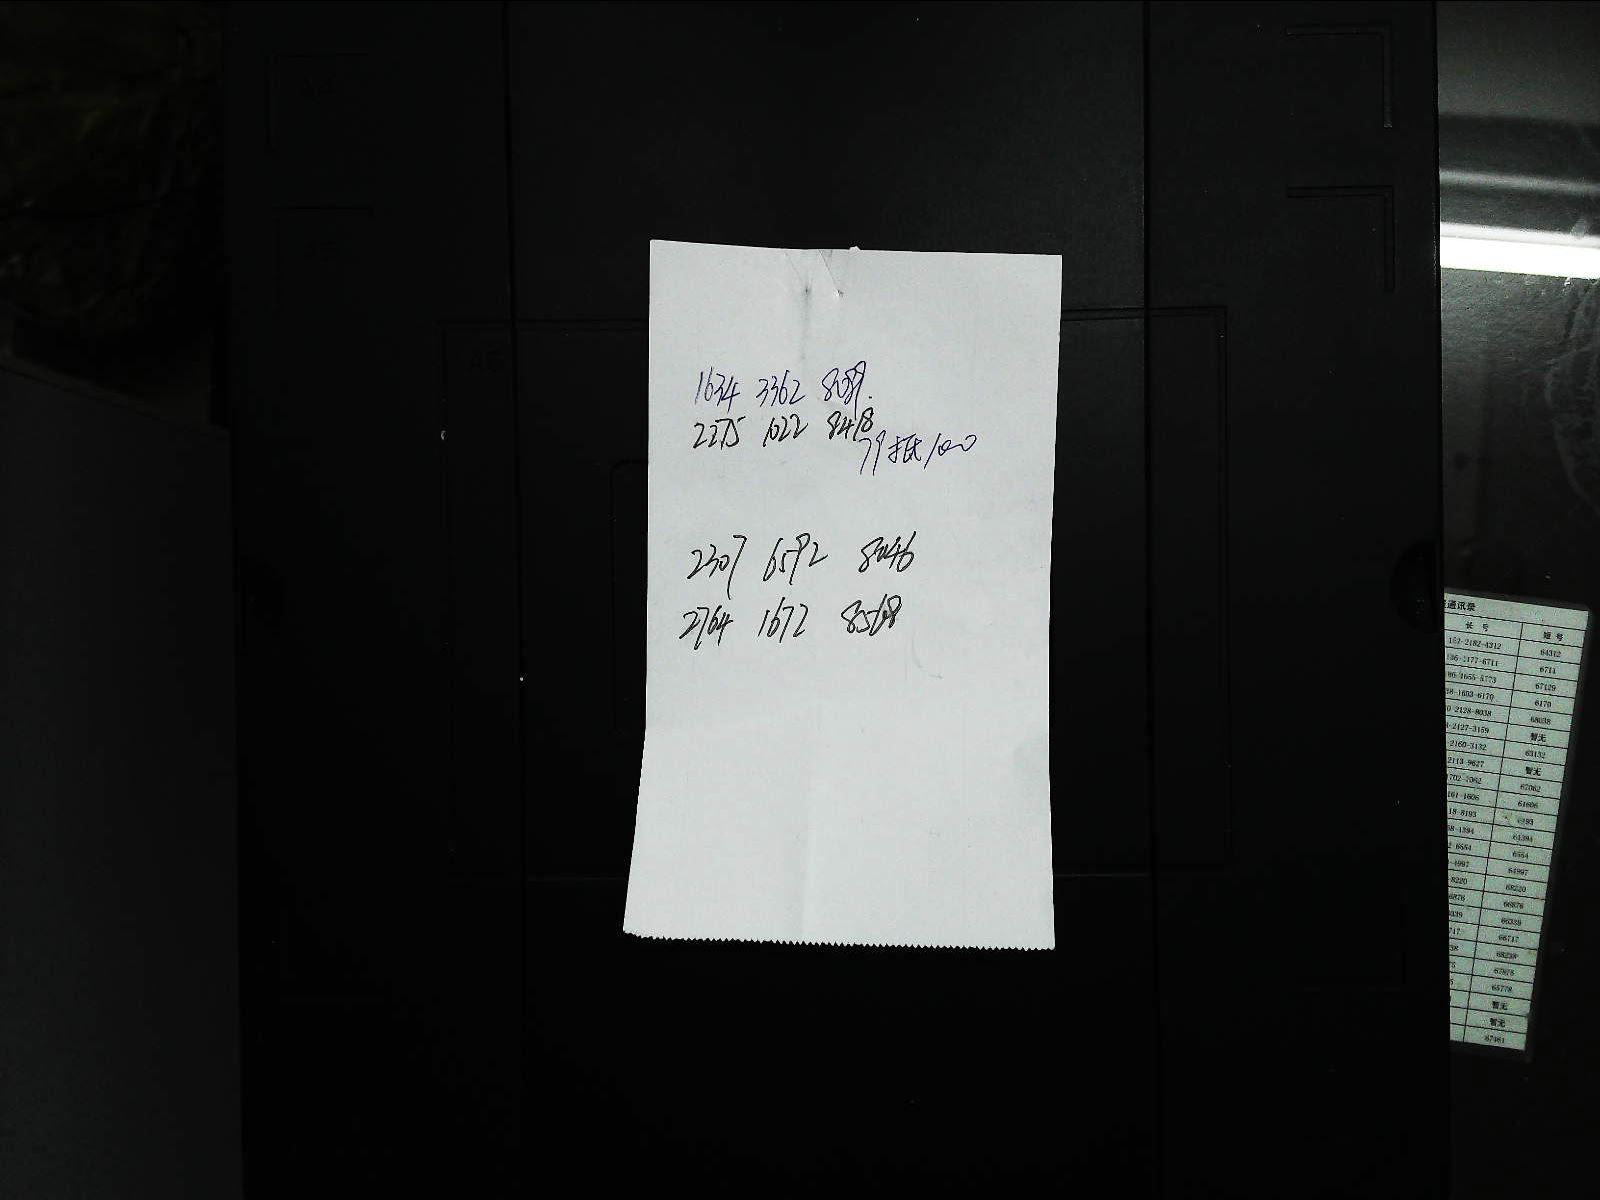 1634 3362 8089.
2275 1022 8418
79抵100
2307 6592 8046
2764 1672 8568
通讯录
长 号 短 号
152-2182-4312 64312
136-2177-6711 6711
67129
38-1603-6170 6170
0-2128-8038 68038
-2127-3159 暂无
-2160-3132 63132
2113-9627 暂无
702-7062 67062
161-1606 61606
18-8193 8193
8-1394 61394
2-6554 6554
-4997 64997
-8220 68220
6876 66876
6339 66339
717 66717
38 68238
75 67875
65778
暂无
暂无
67461
A4
A6